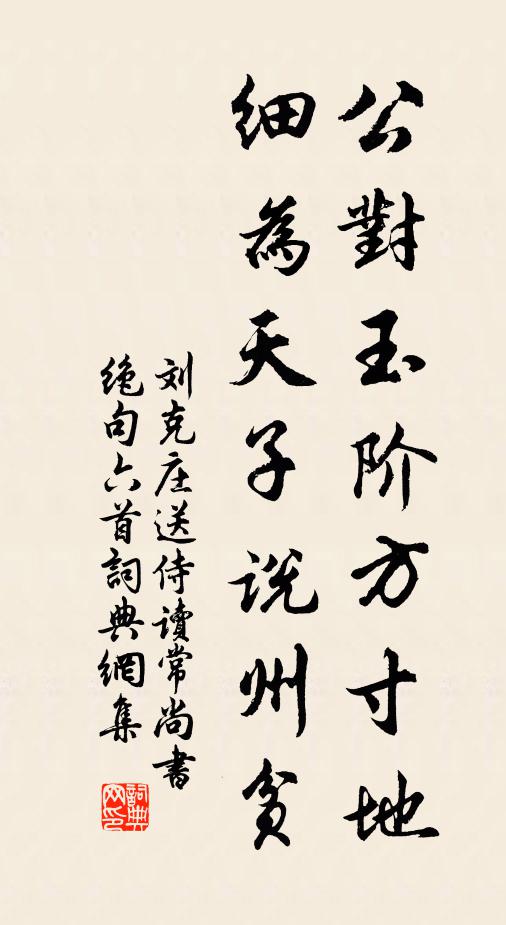 公對玉阶方寸地
細為天子说州贫
刘克庄送侍讀常尚書
绝句六首詞典網集
詞典网印